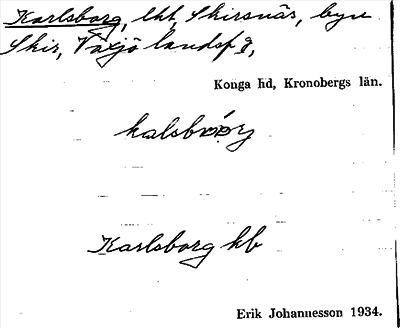 Karlsborg, lht, Skirsnäs, byn
Skir, Växjö landsfg,
Konga hd, Kronobergs län.
Karlsborg kb
Erik Johannesson 1934.